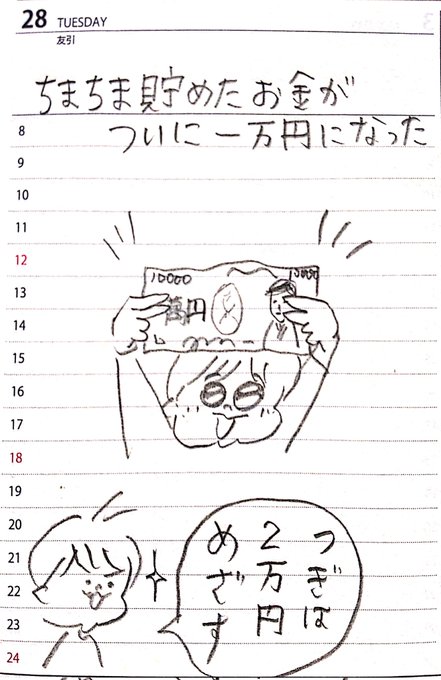 28 TUESDAY
友引
ちまちま貯めたお金が
8
ついに一万円になった
9
10
11
12
10000 10000
13
萬円
14
15
16
17
18
19
20
つぎは
2万円
めざす
21
22
23
24